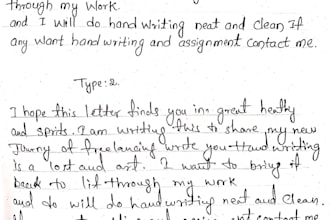 through my work.
and I will do hand writing neat and clean If
any want hand writing and assignment contact me.
Type:2.
I hope this letter finds you inn great heathy
and sprits. I am writing this to share my new
Jurny of freelancing write you Hand writing
is a lost and art. I want to bring it
back to lif through my work
and do will do handwriting neat and clean.
contact me